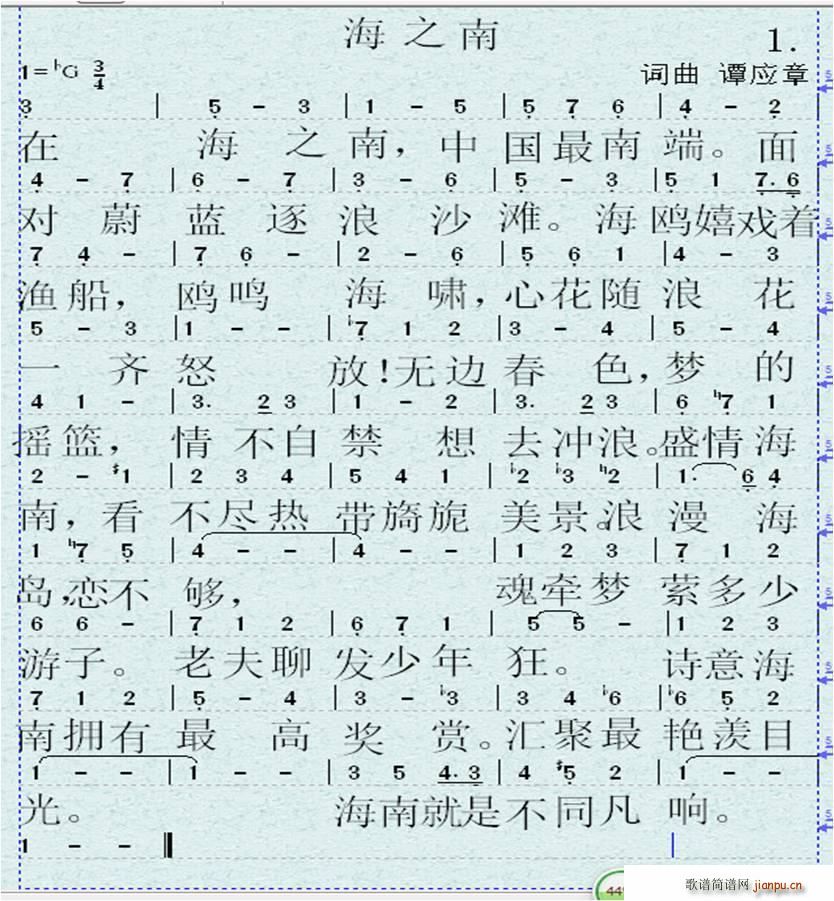 海之南
1.
1=♭G 3/4
词曲 谭应章
3 | 5 - 3 | 1 - 5 | 5 7 6 | 4 - 2
在 海之南，中国最南端。面
4 - 7 | 6 - 7 | 3 - 6 | 5 - 3 | 5 1 7. 6
对蔚蓝逐浪沙滩。海鸥嬉戏着
7 4 - | 7 6 - | 2 - 6 | 5 6 1 | 4 - 3
渔船，鸥鸣海啸，心花随浪花
5 - 3 | 1 - - | ♭7 1 2 | 3 - 4 | 5 - 4
一齐怒放！无边春色，梦的
4 1 - | 3. 2 3 | 1 - 2 | 3. 2 3 | 6 ♮7 1
摇篮，情不自禁想去冲浪。盛情海
2 - ♯1 | 2 3 4 | 5 4 1 | ♭2 ♭3 ♮2 | 1. 6 4
南，看不尽热带旖旎美景。浪漫海
1 ♮7 5 | 4 - - | 4 - - | 1 2 3 | 7 1 2
岛，恋不够，魂牵梦萦多少
6 6 - | 7 1 2 | 6 7 1 | 5 5 - | 1 2 3
游子。老夫聊发少年狂。诗意海
7 1 2 | 5 - 4 | 3 - ♭3 | 3 4 ♭6 | ♭6 5 2
南拥有最高奖赏。汇聚最艳羡目
1 - - | 1 - - | 3 5 4. 3 | 4 ♯5 2 | 1 - -
光。海南就是不同凡响。
1 - -
歌谱简谱网 jianpu.cn